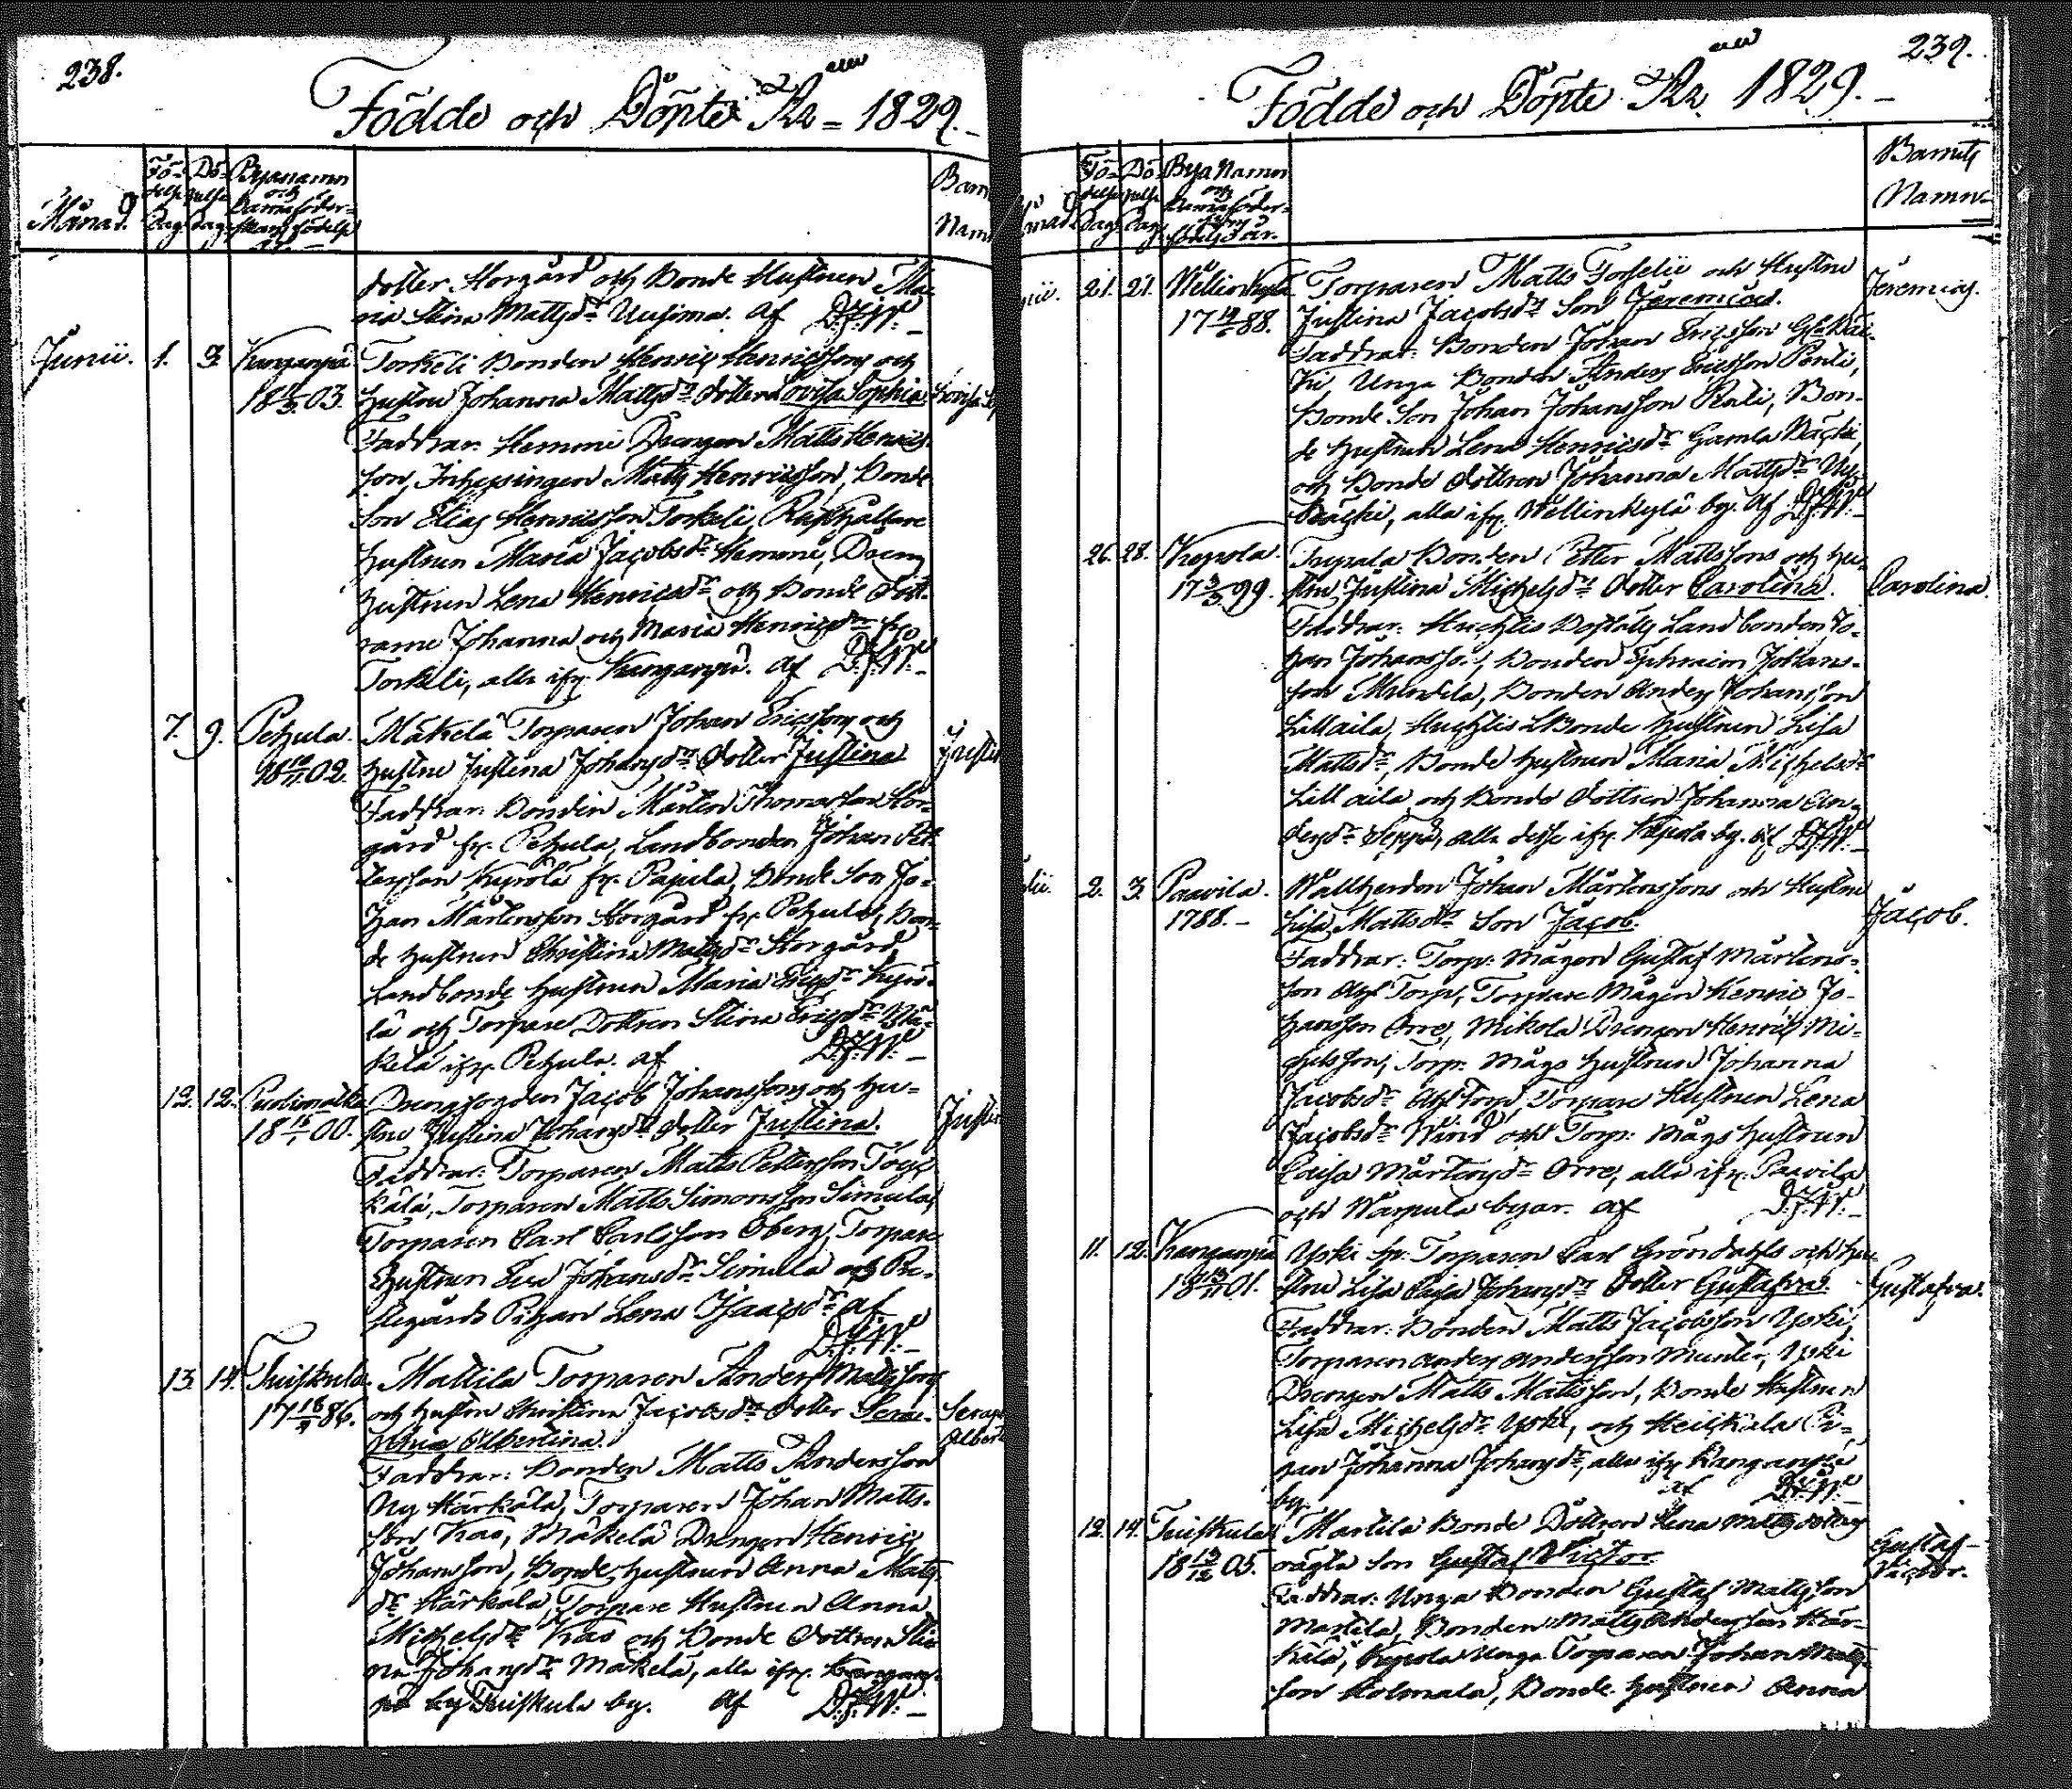 238.
Födde och Döpte År 1829.
Månad.
Fö-
delse
Dag.
Dö-
pelse
dag.
Byanamn
och
Barnaföder-
skans födelse
år.
Barn
Namn
dotter Storgård och Bonde Hustrun Ma-
ria Stina Mattsdr Uusima. Af D.J.W.
Junii. 1. 3. Kanganpä Torkeli Bonden Henric Henricssons och
18 03. Hustrus Johanna Mattsdr dotter Lovisa Sophia. Lovisa So
Faddrar: Hemmi Drengen Matts Henrics-
son, Inhysingen Matts Henricsson, Bonde
Son Elias Henricsson Torkeli, Rusthållare
Hustrun Maria Jacobsdr Hemmi, Dreng
Hustrun Lena Henricsdr och Bonde Dött-
rarne Johanna och Maria Henricsdr fr.
Torkeli, alla ifr. Kanganpä. af D.J.W.
7. 9. Pehula. Mäkelä Torparen Johan Ericssons och
18 02. Hustrus Justina Johansdr Dotter Justina Justin
Faddrar: Bonden Mårten Thomasson Stor-
gård fr. Pehula, Landbonden Johan Pet-
tersson Kyrölä fr. Pajula, Bonde Son Jo-
han Mårtensson Storgård fr. Pehula, Bon-
de Hustrun Christina Mattsdr Storgård,
Landbonde Hustrun Maria Ericsdr Kyrö-
lä och Torpare Dottren Stina Ericsdr Mä-
kelä ifr. Pehula. af D.J.W.
12. 12. Drengsonden Jacob Johanssons och Hu-
18 00. strus Justina Johansdr dotter Justina. Justin
Faddrar: Torparen Matts Pettersson
Torparen Matts Simonsson Simula,
Torparen Carl Carlsson Öberg, Torpare
Hustrun Eva Johansdr Simula och Pre-
stegårds Pigan Lena Isaacsdr af
D.J.W.
13. 14. Tuiskula Mattila Torparen Anders Mattssons
17 86. och Hustrus Christina Jacobsdr Dotter Sera- Serap
phia Albertina. Albert
Faddrar: Bonden Matts Andersson
Ny Härkälä, Torparen Johan Matts-
son Kas, Mäkelä Drengen Henric
Johansson, Bonde Hustrun Anna Matts-
dr Härkälä, Torpare Hustrun Anna
Michelsdr Kas och Bonde dottren Sti-
na Johansdr Mäkelä, alla ifr.
Tuiskula by. af D.J.W.
239.
Födde och Döpte År 1829.
Fö-
delse
Dag.
Dö-
pelse
Dag.
Bya Namn
och
Barnaföder-
skans
födelse år.
Barnets
Namn
21. 21. Wellinkylä Torparen Matts Torselii och Hustru Jeremias.
17 88. Justina Jacobsdr Son Jeremias.
Faddrar: Bonden Johan Ericsson Gla Bäc-
ki, Unga Bonden Anders Ericsson Penti,
Bonde Son Johan Johansson Rali, Bon-
de Hustrun Lena Henricsdr Gamla Bäcki,
och Bonde dottren Johanna Mattsdr Ny-
Bäcki, alla ifr. Wellinkylä by. Af D.J.W.
26. 28. Kepola. Bonden Petter Mattssons och Hu-
17 99. strus Justina Michelsdr Dotter Carolina. Carolina.
Faddrar: Huchtis Boställs Landbonden Jo-
han Johansson, Bonden Ephraim Johans-
son Mundila, Bonden Anders Johansson
Lillaila, Huchtis LBonde Hustrun Lisa
Mattsdr, Bonde Hustrun Maria Michelsdr
Lill aila och Bonde dottren Johanna An-
dersdr Seppä, alla desse ifr. Kepola by. af D.J.W.
2. 3. Paavila. Wallherden Johan Mårtenssons och Hustru
1788. Lisa Mattsdr Son Jacob. Jacob.
Faddrar: Torp. Mågen Gustaf Mårtens-
son Torp, Torpare Mågen Henric Jo-
hansson Orre, Mikola Drengen Henric Mi-
chelsson, Torp. Mågs Hustrun Johanna
Jacobsdr Torpare Hustrun Lena
Jacobsdr Wind och Torp: Mågs Hustrun
Caisa Mårtensdr Orre, alla ifr. Paavila
och Warpula byar. af D.J.W.
11. 12. Kanganpä Yski fr. Torparen Carl Gröndahls och Hu-
18 01. strus Lisa Caisa Johansdr dotter Gustafva. Gustafva.
Faddrar: Bonden Matts Jacobsson Yski,
Torparen Anders Andersson Munter, Yski
Drengen Matts Mattsson, Bonde Hustrun
Lisa Michelsdr Yski, och Heickala Pi-
gan Johanna Johansdr, alla ifr Kanganpä
by. af D.J.W.
12. 14. Tuiskula Martila Bonde Dottren Lena Mattsdotters
18 05. oägta Son Gustaf Victor Gustaf
Victor.
Faddrar: Unga Bonden Gustaf Mattsson
Martila, Bonden Matts Andersson Här-
kälä, Kepola Unga Torparen Johan Matts-
son Holmala, Bonde Hustrun Anna